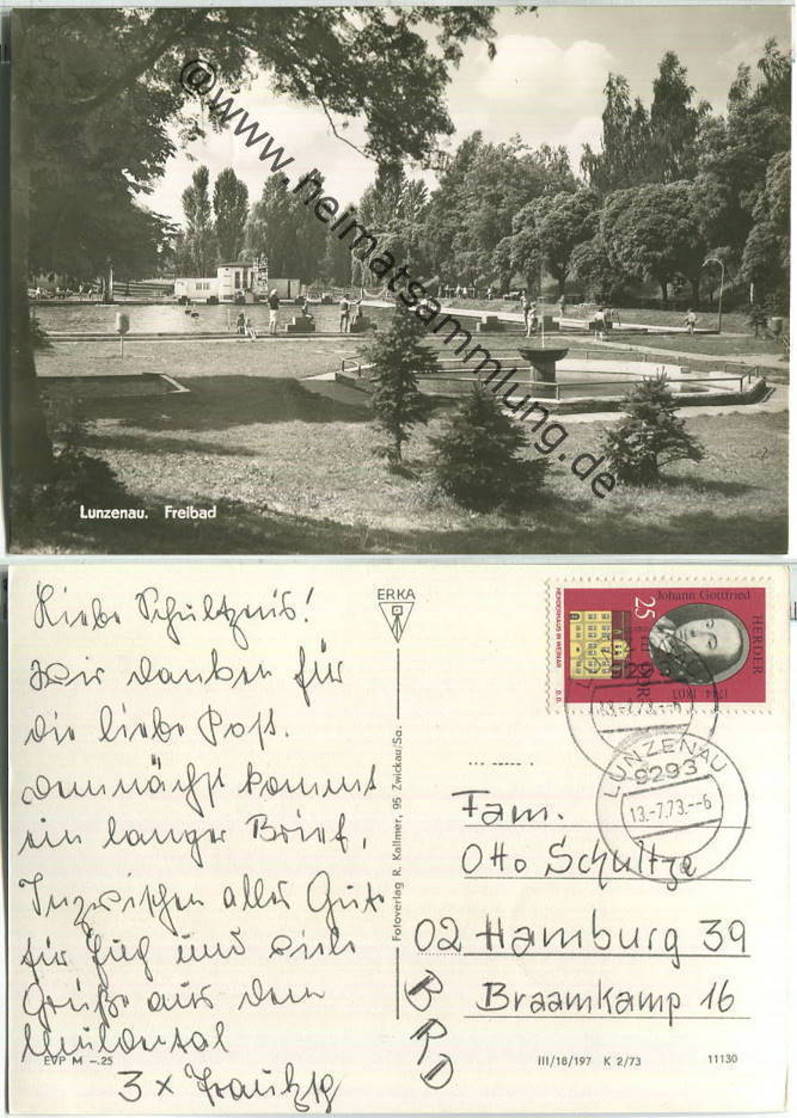 @www.heimatsammlung.de
Lunzenau. Freibad
Liebe Schultzens!
Wir danken für
die liebe Post.
Demnächst kommt
ein langer Brief.
Inzwischen alles Gute
für Euch und viele
Grüße aus dem
Muldental
3 x
EVP M -.25
ERKA
Fotoverlag R. Kallmer, 95 Zwickau/Sa.
Johann Gottfried
HERDER
1744-1803
25
HERDERHAUS IN WEIMAR
DDR
LUNZENAU
9293
13.-7.73.--6
Fam.
Otto Schultze
02 Hamburg 39
Braamkamp 16
BRD
III/18/197 K 2/73
11130